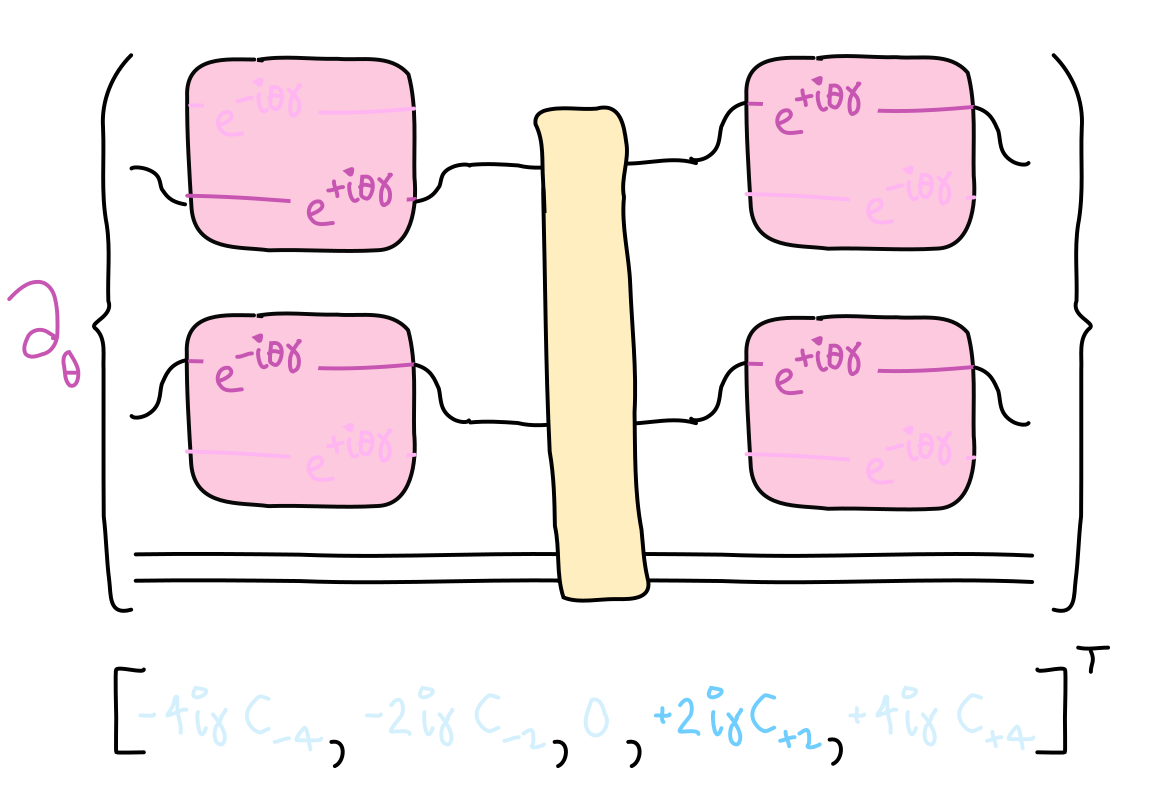 e^{-iθγ} e^{+iθγ}
e^{+iθγ} e^{-iθγ}
∂_θ
e^{-iθγ} e^{+iθγ}
e^{+iθγ} e^{-iθγ}
[-4iγC_{-4}, -2iγC_{-2}, 0, +2iγC_{+2}, +4iγC_{+4}]^T